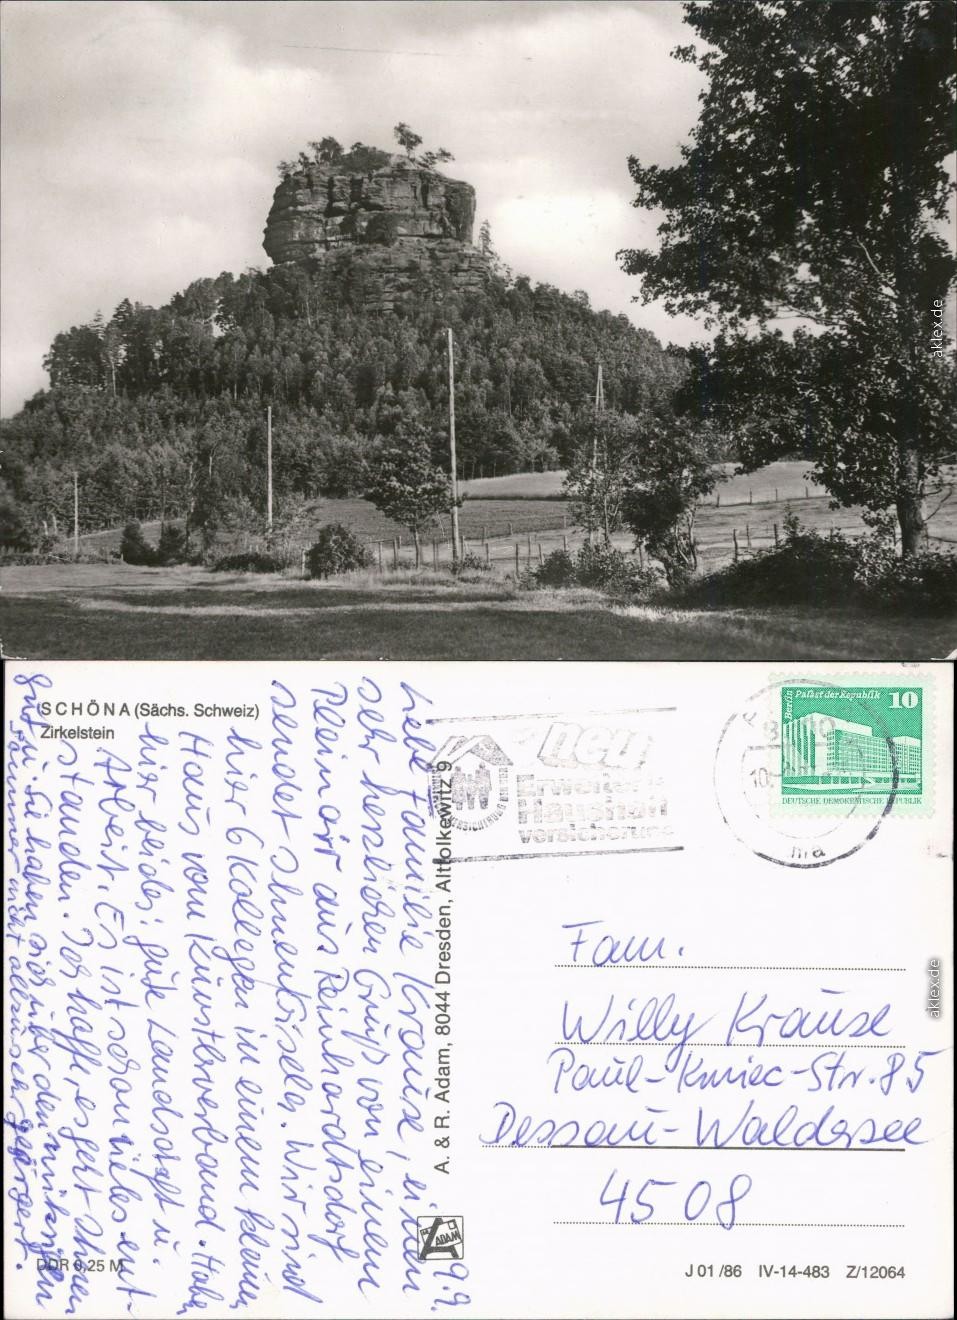 aklex.de
SCHÖNA (Sächs. Schweiz)
Zirkelstein
9.9.
Liebe Familie Krause, einen
sehr herzlichen Gruß von einem
Pleinair aus Reinhardtsdorf
sendet Ihnen Gisela. Wir sind
hier 6 Kollegen in einem kleinen
Haus vom Künstlerverband. Habe
hier beides: gute Landschaft u.
Arbeit. Es ist schon vieles ent-
standen. Ich hoffe, es geht Ihnen
gut u. Sie haben sich über den
Sommer nicht allzusehr geärgert.
DDR 0,25 M
A. & R. Adam, 8044 Dresden, Alttolkewitz 9
ADAM
neu
Erweiterte
Haushalt
versicherung
Berlin Palast der Republik
10
DEUTSCHE DEMOKRATISCHE REPUBLIK
Fam.
Willy Krause
Paul-Kmiec-Str. 85
Dessau-Waldersee
4508
J 01/86 IV-14-483 Z/12064
aklex.de